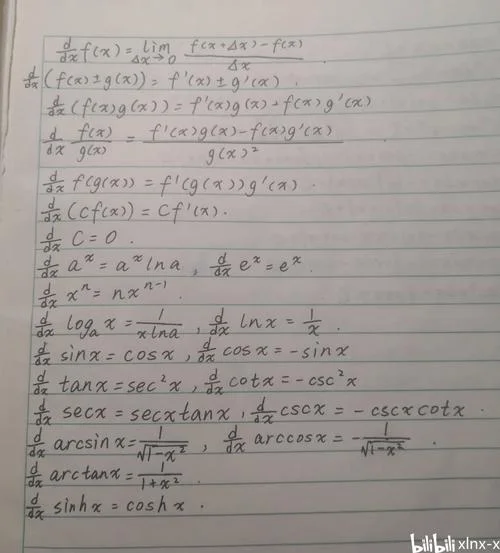 d/dx f(x) = lim Δx→0 (f(x+Δx)-f(x))/Δx
d/dx (f(x) ± g(x)) = f'(x) ± g'(x) .
d/dx (f(x)g(x)) = f'(x)g(x) + f(x)g'(x)
d/dx f(x)/g(x) = (f'(x)g(x)-f(x)g'(x))/g(x)²
d/dx f(g(x)) = f'(g(x))g'(x) .
d/dx (Cf(x)) = Cf'(x).
d/dx C = 0 .
d/dx aˣ = aˣ lna , d/dx eˣ = eˣ .
d/dx xⁿ = nxⁿ⁻¹ .
d/dx logₐ x = 1/(xlna) , d/dx lnx = 1/x .
d/dx sinx = cosx , d/dx cosx = -sinx
d/dx tanx = sec²x , d/dx cotx = -csc²x
d/dx secx = secxtanx , d/dx cscx = -cscxcotx .
d/dx arcsinx = 1/√(1-x²) , d/dx arccosx = -1/√(1-x²) .
d/dx arctanx = 1/(1+x²) .
d/dx sinhx = coshx .
bilibili xlnx-x